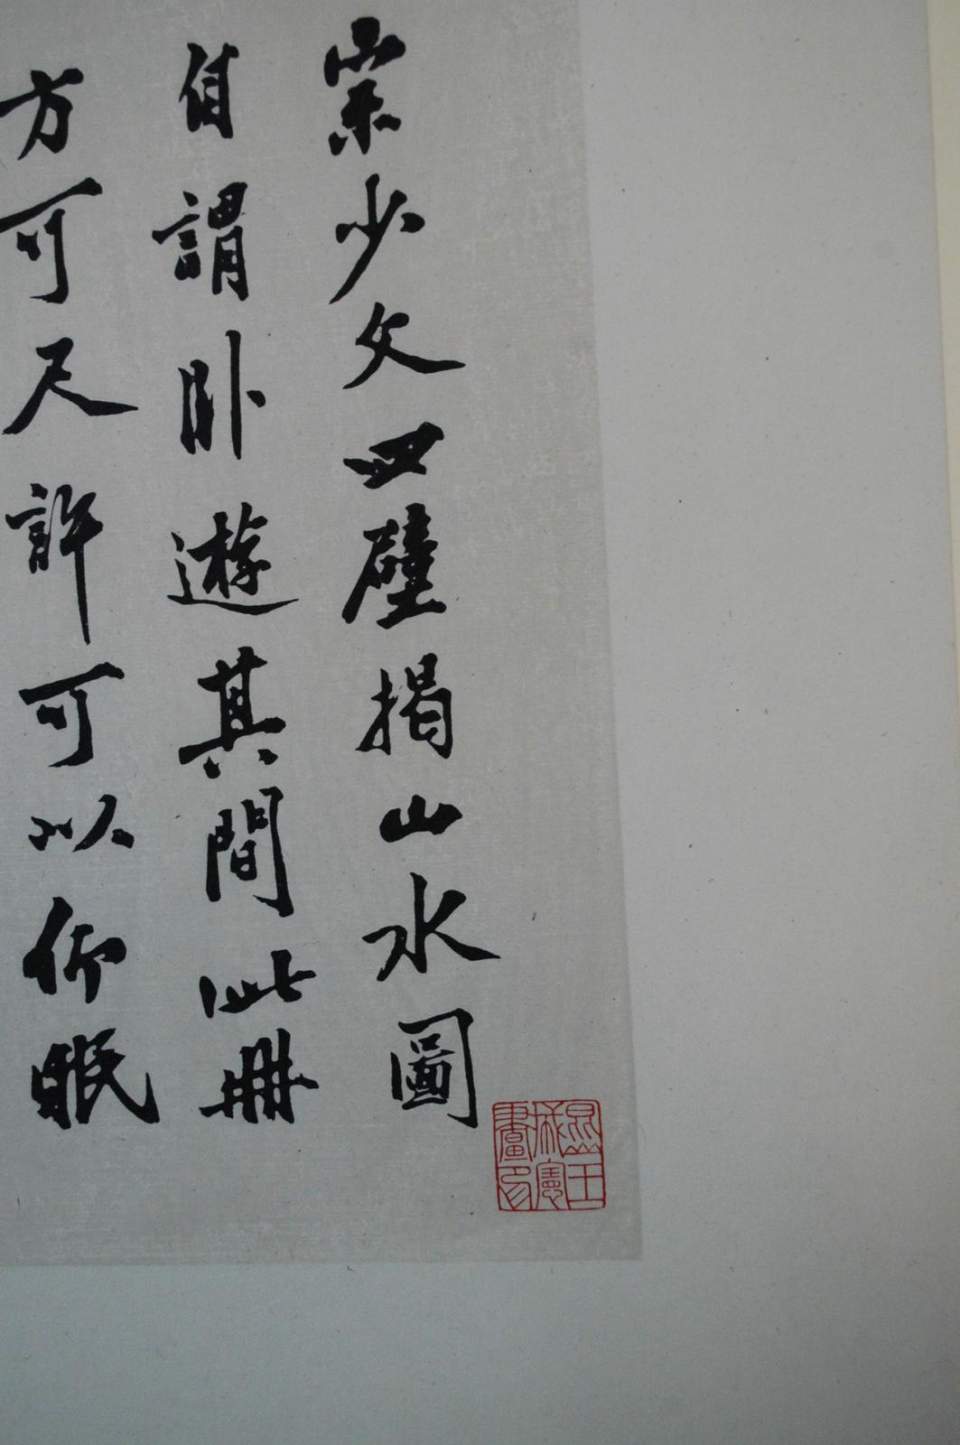 宗少文四壁揭山水圖
自謂臥遊其間此冊
方可尺許可以仰眠